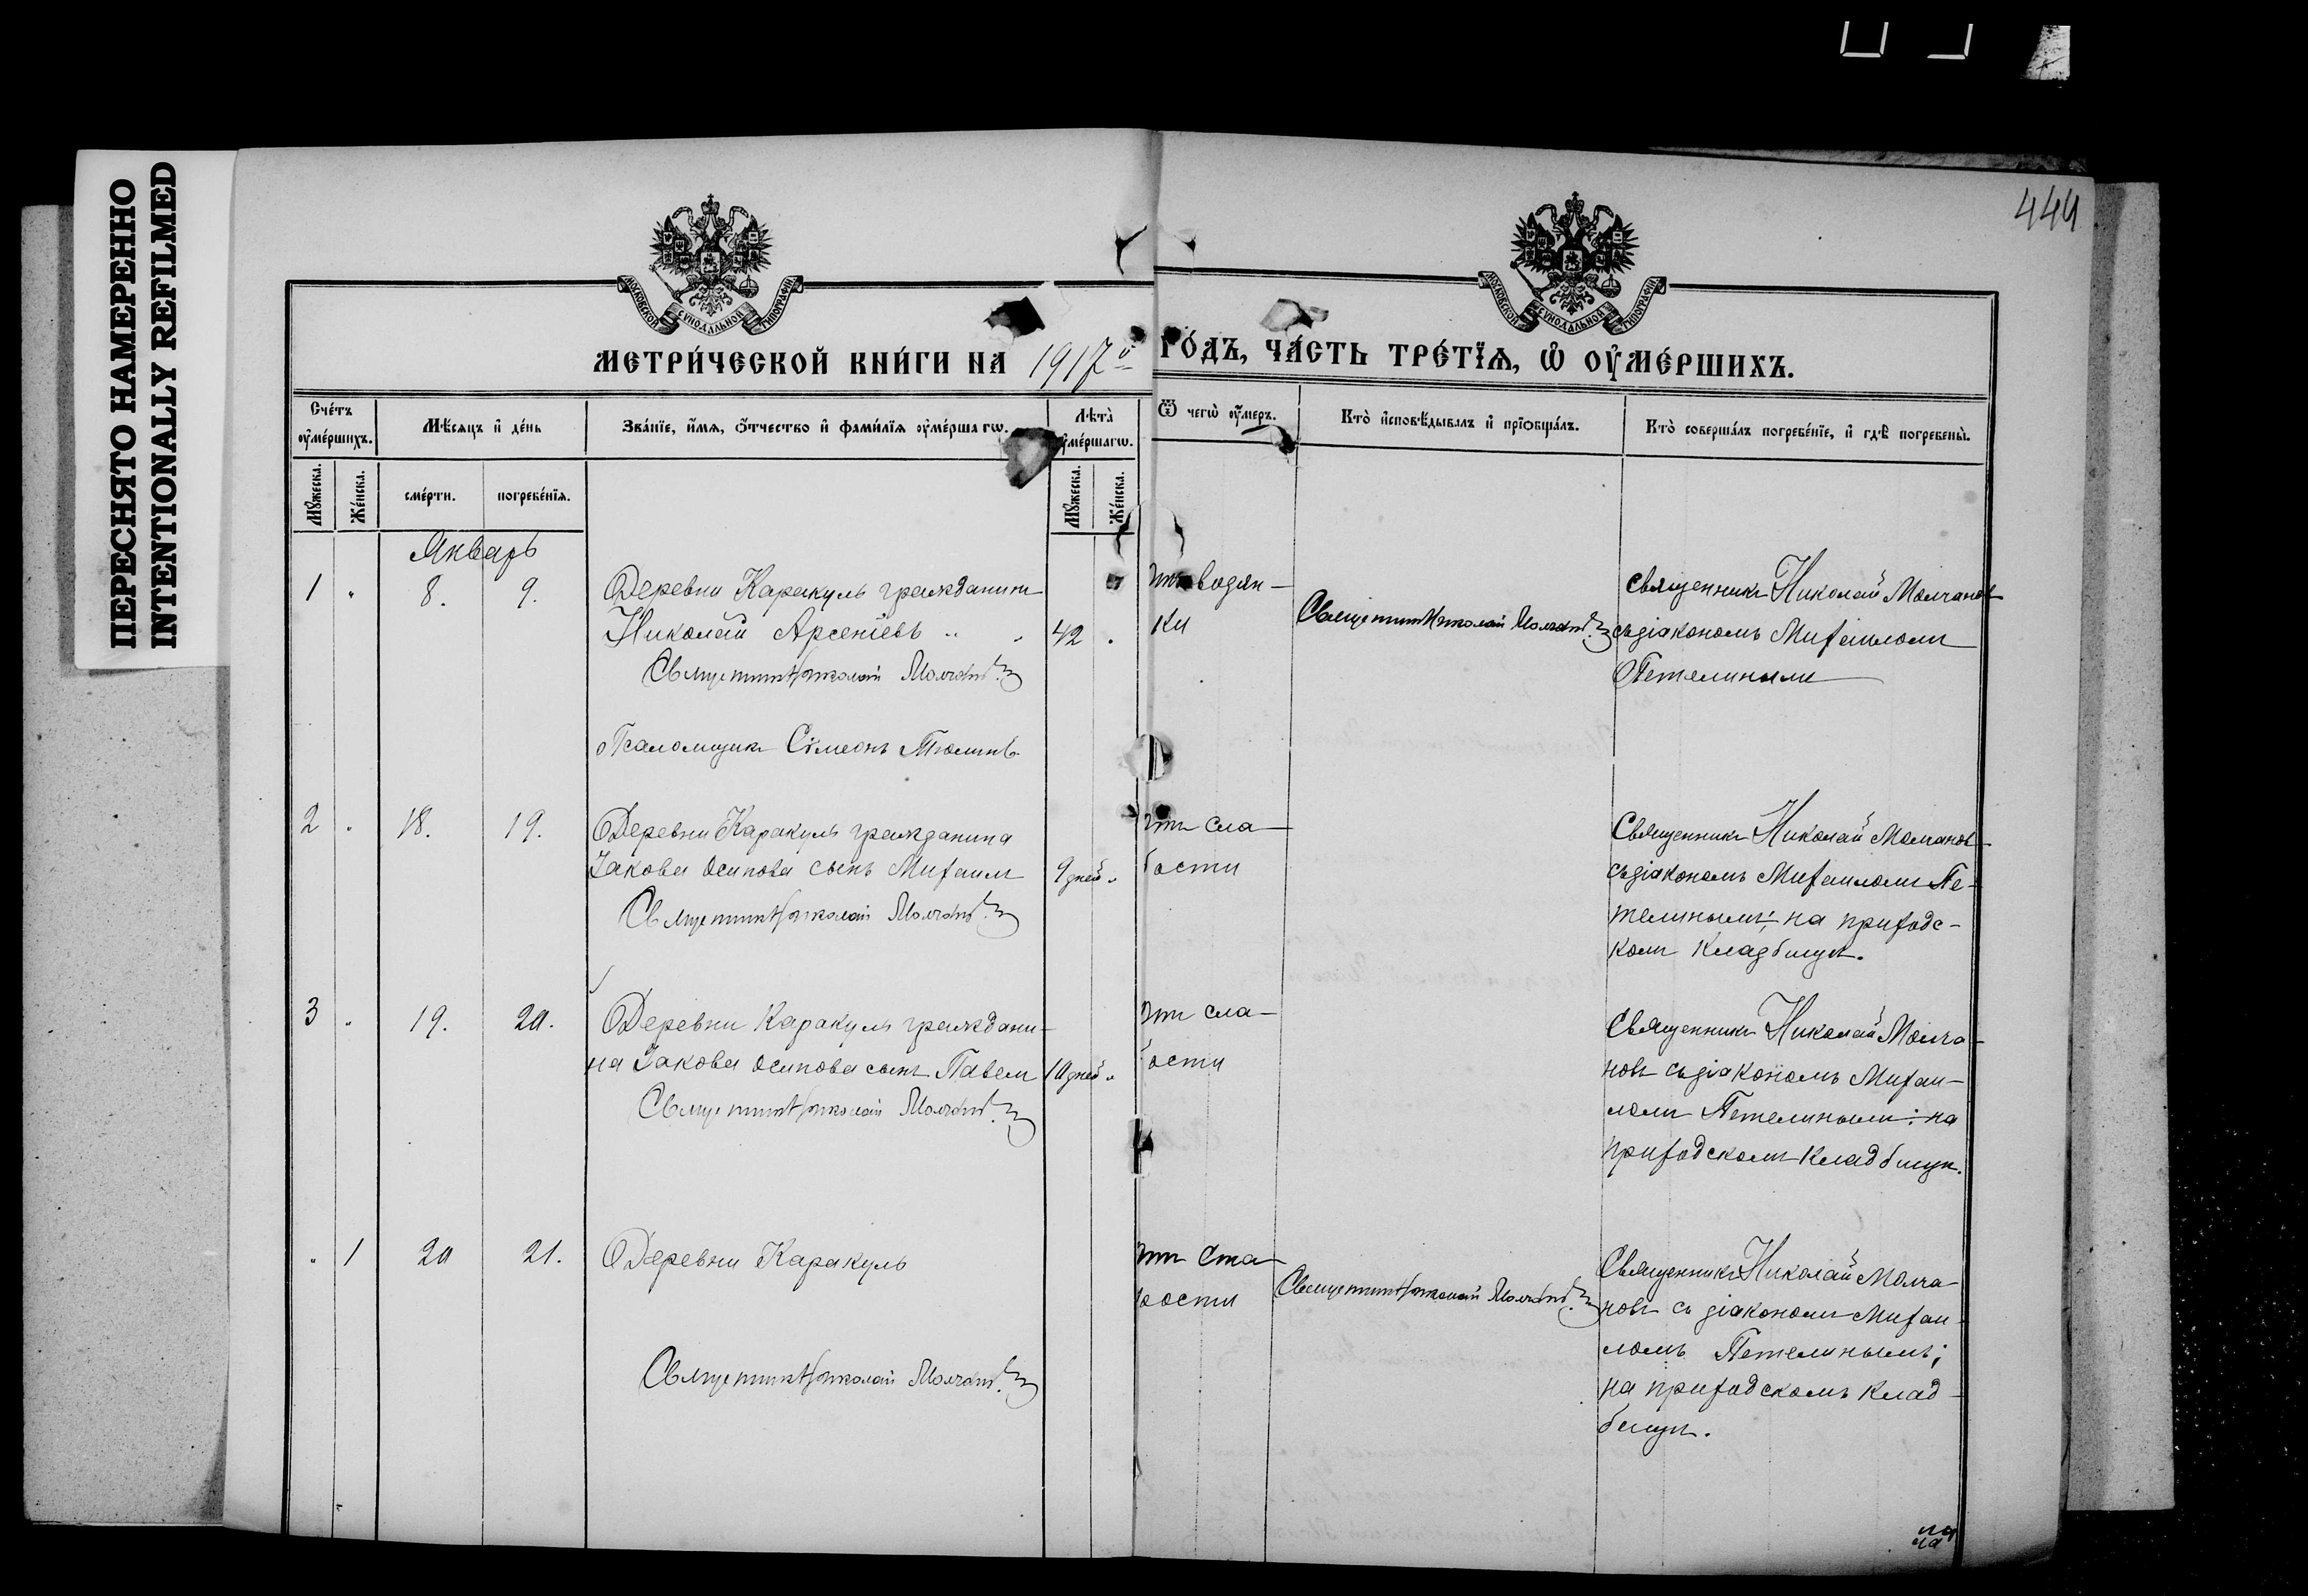 ПЕРЕСНЯТО НАМЕРЕННО
INTENTIONALLY REFILMED
444
МОСКОВСКОЙ СѴНОДАЛЬНОЙ ТИПОГРАФІИ
МОСКОВСКОЙ СѴНОДАЛЬНОЙ ТИПОГРАФІИ
МЕТРИ́ЧЕСКОЙ КНИ́ГИ НА 1917й ГО́ДЪ, ЧА́СТЬ ТРЕ́ТЇѦ, Ѡ҆ ОУ҆МЕ́РШИХЪ.
Сче́тъ оу҆ме́ршихъ.
Мѣ́сяцъ и҆ де́нь
Зва́нїе, и҆́мѧ, ѻ҆́тчество и҆ фами́лїѧ оу҆ме́ршагѡ.
Лѣ́та оу҆ме́ршагѡ.
Ѿ чегѡ̀ оу҆́меръ.
Кто̀ и҆сповѣ́дывалъ и҆ прїѡбща́лъ.
Кто̀ соверша́лъ погребе́нїе, и҆ гдѣ̀ погребены̀.
Мꙋ́жеска.
Же́нска.
сме́рти.
погребе́нїѧ.
Мꙋ́жеска.
Же́нска.
Январь
1 " 8. 9.
Деревни Каракуль гражданинъ
Николай Арсеніевъ
42
Священникъ Николай Молчановъ
Псаломщикъ Сѵмеонъ
отъ водян-
ки
Священникъ Николай Молчановъ
Священникъ Николай Молчановъ
съ діакономъ Михаиломъ
Петелинымъ
2 " 18. 19.
Деревни Каракуль гражданина
Іакова Осипова сынъ Михаилъ
9 дней "
Священникъ Николай Молчановъ
отъ сла-
бости
Священникъ Николай Молчановъ
съ діакономъ Михаиломъ Пе-
телинымъ; на приходс-
комъ кладбищѣ.
3 " 19. 20.
Деревни Каракуль граждани-
на Іакова Осипова сынъ Павелъ
10 дней "
Священникъ Николай Молчановъ
отъ сла-
бости
Священникъ Николай Молча-
новъ съ діакономъ Михаи-
ломъ Петелинымъ: на
приходскомъ кладбищѣ.
" 1 20 21.
Деревни Каракуль
Священникъ Николай Молчановъ
отъ ста-
рости
Священникъ Николай Молчановъ
Священникъ Николай Молча-
новъ съ діакономъ Михаи-
ломъ Петелинымъ;
на приходскомъ клад-
бищѣ.